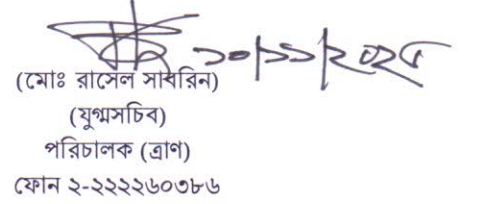 ১০/১১/২০২৫
(মোঃ রাসেল সাবরিন)
(যুগ্মসচিব)
পরিচালক (ত্রাণ)
ফোন ২-২২২২৬০৩৮৬